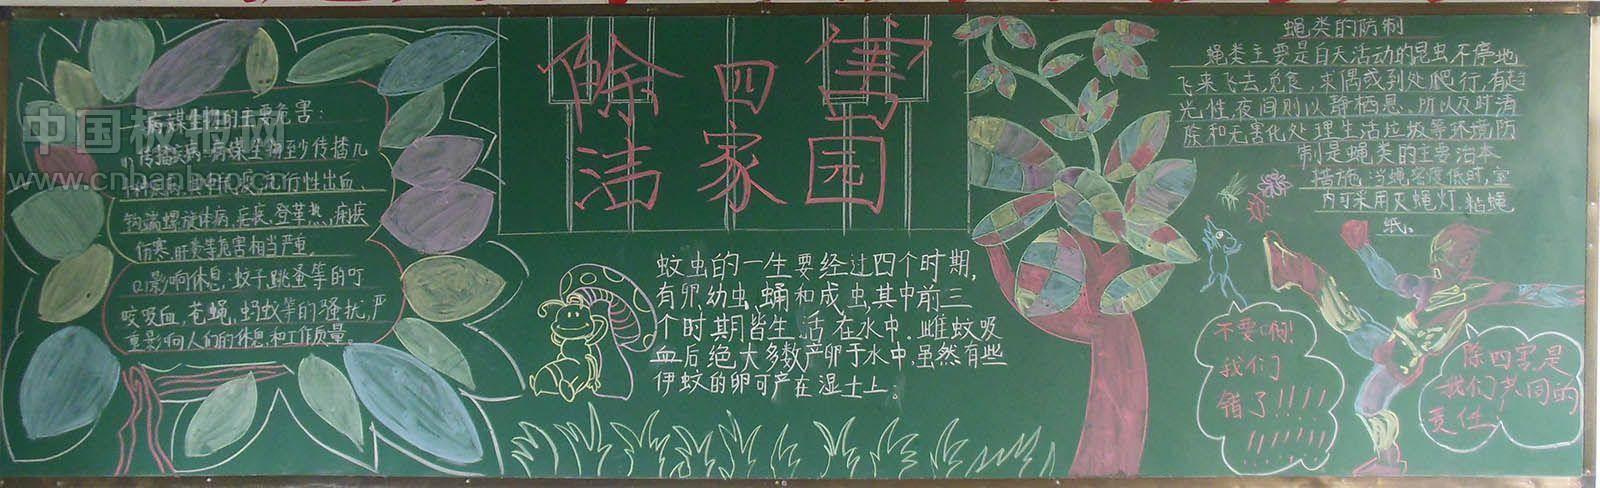 中国板报网
www.cnbanbao.cn
病媒生物的主要危害:
传播疾病 病媒生物至少传播几
流行性出血
钩端螺旋体病,疟疾、登革热、痢疾
伤寒、肝炎等危害相当严重。
影响休息:蚊子跳蚤等的叮
咬吸血,苍蝇,蚂蚁等的骚扰,严
重影响人们的休息和工作质量。
除四害
洁家园
蚊虫的一生要经过四个时期,
有卵幼虫、蛹和成虫,其中前三
个时期皆生活在水中.雌蚊吸
血后绝大多数产卵于水中.虽然有些
伊蚊的卵可产在湿土上。
蝇类的防制
蝇类主要是白天活动的昆虫不停地
飞来飞去,觅食,求偶或到处爬行,有趋
光性,夜间则以静栖息、所以及时清
除和无害化处理生活垃圾等环境防
制是蝇类的主要治本
措施,当蝇密度低时,室
内可采用灭蝇灯.粘蝇
纸。
不要啊!
我们
错了!!!!
!!!!!!!
除四害是
我们共同的
责任!